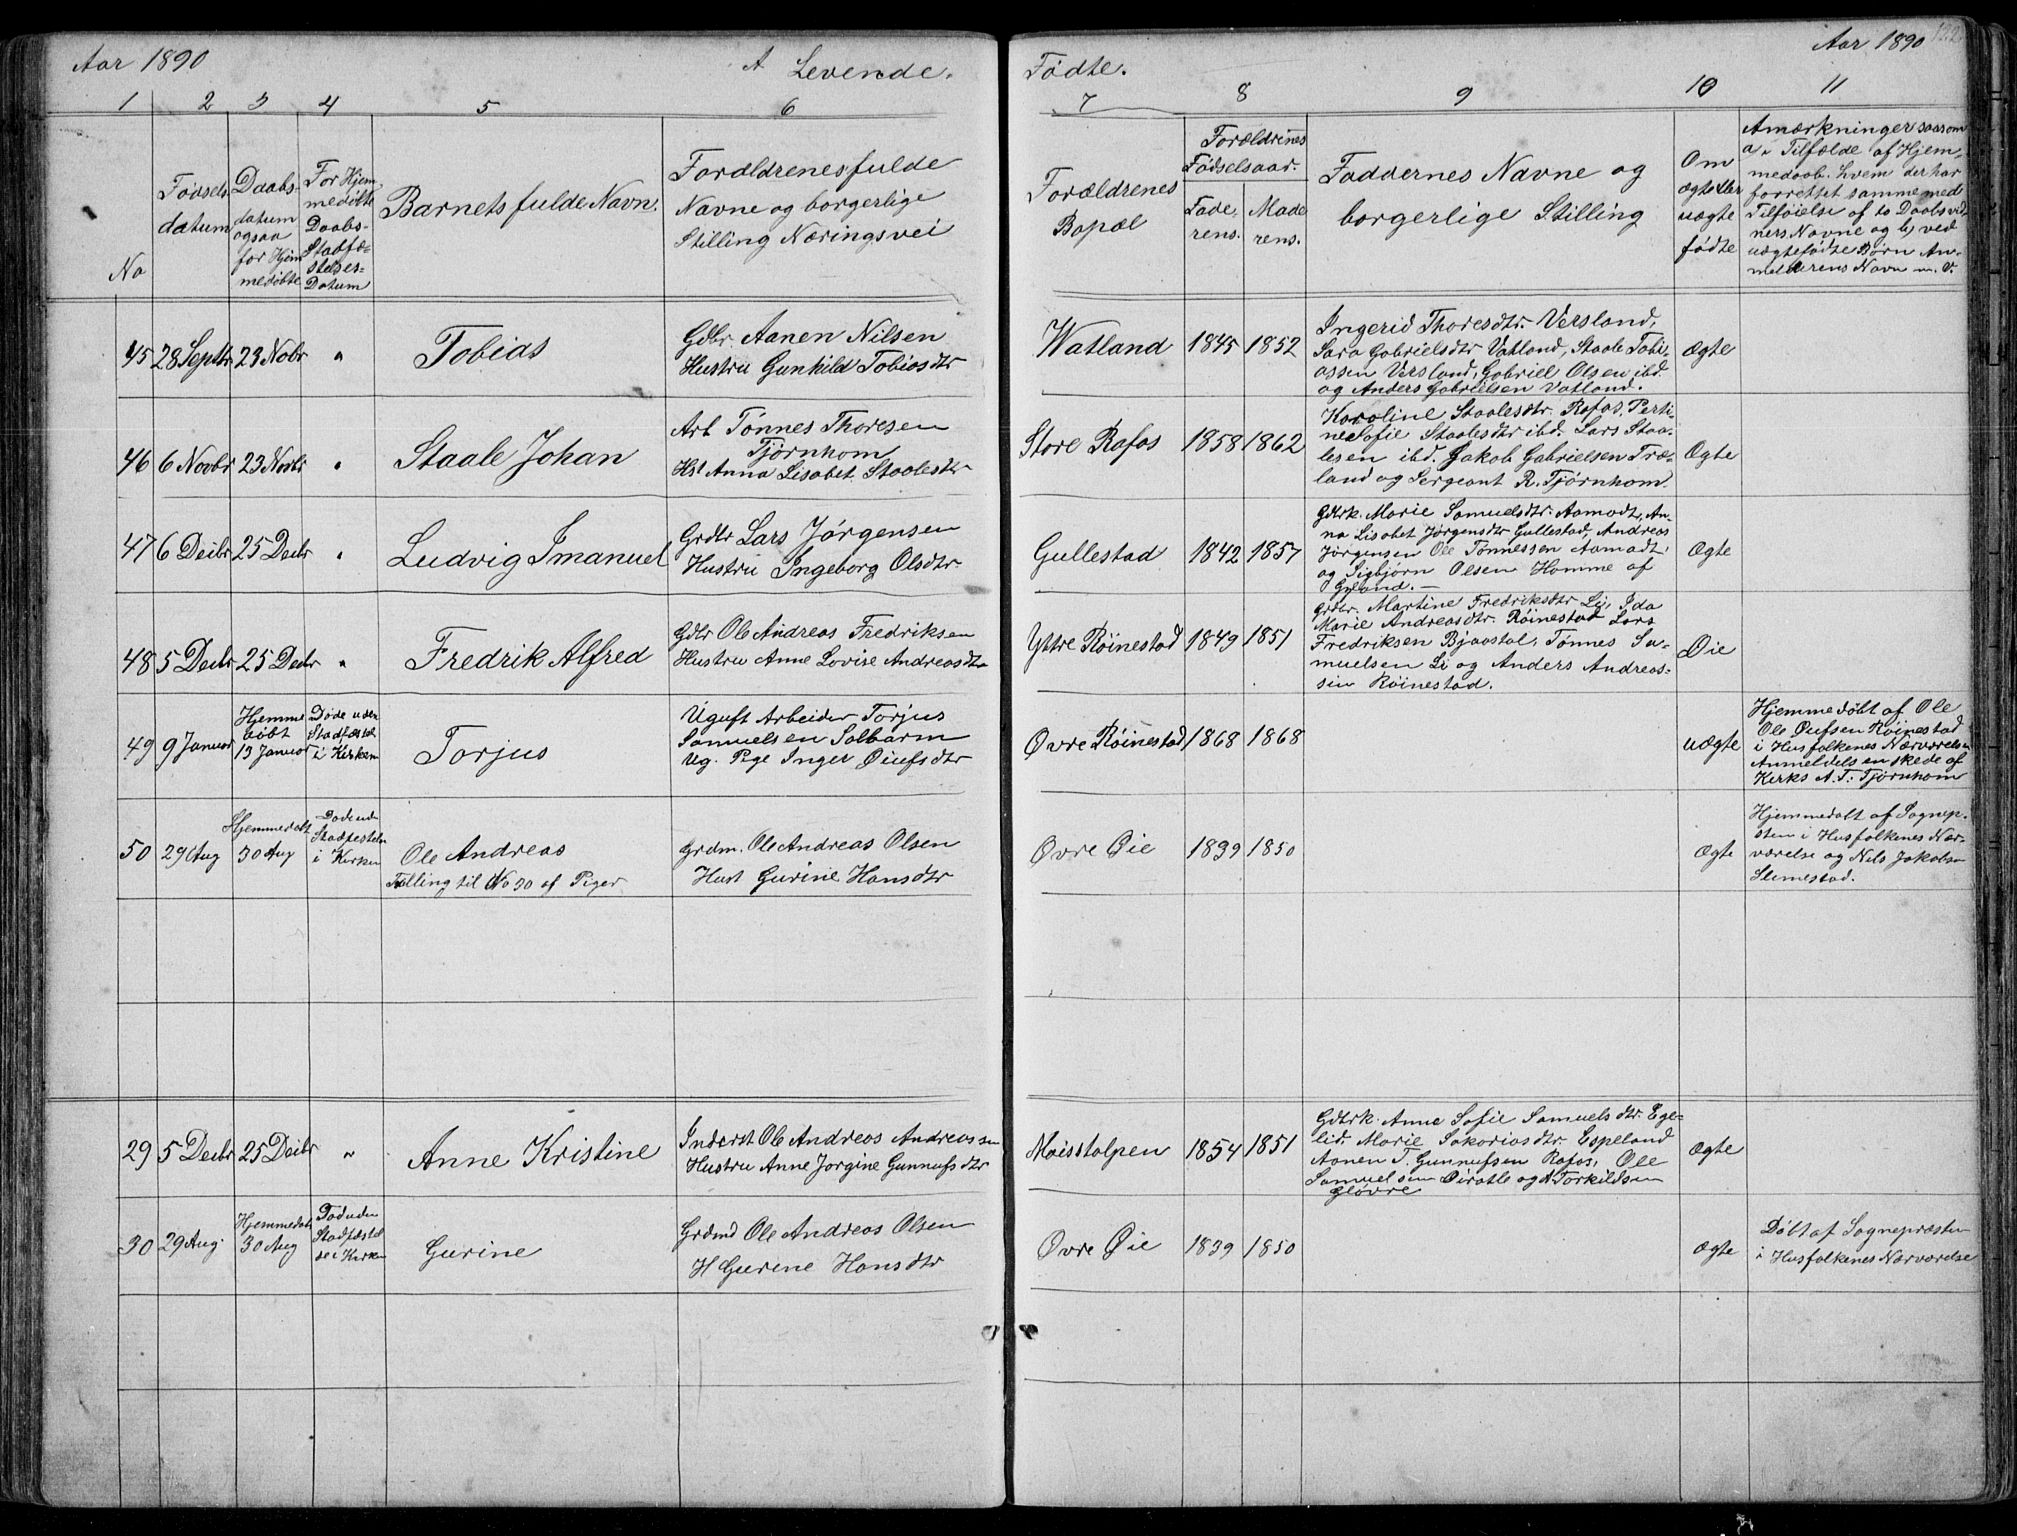 Aar 1890
A Levende.
Fødte.
Aar 1890
122
1 2 3 4 5 6
7 8 9 10 11
No
Fødsels
datum
Daabs-
datum
ogsaa
for Hjem
medøbte
For Hjem
medøbte
Daabs-
Stadfæ-
stelses-
Datum
Barnets fulde Navn.
Forældrenes fulde
Navne og borgerlige
Stilling Næringsvei
Forældrenes
Bopæl
Forældrenes
Fødselsaar.
Fade-
rens.
Mode
rens.
Faddernes Navne og
borgerlige Stilling
Om
ægte eller
uægte
fødte
Amærkninger saasom
a, Tilfælde af Hjem-
medaab. hvem der har
forrettet samme med
Tilføielse af to Daabsvid-
ners Navne og b, ved
uægtefødte Børn An-
melderens Navn m. v.
45 28 Septbr 23 Nobr "
Tobias
Gdbr Aanen Nilsen
Hustru Gunhild Tobiasdtr
Watland 1845 1852
Ingerid Thoresdtr. Versland,
Sara Gabrielsdtr Vatland, Staale Tobi-
assen Versland, Gabriel Olsen ibd.
og Anders Gabrielsen Vatland.
Ægte
46 6 Novbr 23 Novbr "
Staale Johan
Arb Tønnes Thoresen
Tjørnhom
Hst Anna Lisabet Staalesdtr
Store Rafos 1858 1862
Karoline Staalesdtr. Rafos, Perti-
ne Sofie Staalesdtr ibd. Lars Staa-
lesen ibd. Jakob Gabrielsen Træ-
land og Sergeant R. Tjørnhom.
Ægte
47 6 Decbr 25 Decbr "
Ludvig Imanuel
Grdbr Lars Jørgensen
Hustru Ingeborg Olsdtr
Gullestad 1842 1857
Gdbrk. Marie Samuelsdtr. Aamodt, An-
na Lisabet Jørgensdtr Gullestad, Andreas
Jørgensen Ole Tønnessen Aamodt,
og Sigbjørn Olsen Homme af
Gyland.
Ægte
48 5 Decbr 25 Decbr "
Fredrik Alfred
Gdbr Ole Andreas Fredriksen
Hustru Anne Lovise Andreasdtr
Yttre Røinestad 1849 1851
Grdbr. Martine Fredriksdtr Li, Ida
Marie Andreasdtr. Røinestad Lars
Fredriksen Bjaastal, Tønnes Sa-
muelsen Li og Anders Andreas-
sen Røinestad.
Øie
49 9 Januar
Hjemme
døbt
13 Januar
Døde uden
Stadfæstel
i Kirken
Torjus
Uguft Arbeider Torjus
Samuelsen Salbarm
Ug. Pige Inger Øiufsdtr
Øvre Røinestad 1868 1868
uægte
Hjemmedøbt af Ole
Ole Øiufsen Røinestad
i Husfolkenes Nærværelse
Anmeldelsen skede af
Kerks A. T. Tjørnhom
50 29 Aug
Hjemmedøbt
30 Aug
Døde uden
Stadfestelse
i Kirken
Ole Andreas
Tvilling til No 30 af Piger
Grdm. Ole Andreas Olsen
Hust Gurine Hansdtr
Øvre Øie 1839 1850
Ægte
Hjemmedøbt af Sognep-
sten i Husfolkenes Nær-
værelse og Nils Jakobsen
Slimestad.
29 5 Decbr 25 Decbr "
Anne Kristine
Inderst Ole Andreas Andreassen
Hustru Anne Jorgine Gunnufsdtr
Moisstolpen 1854 1851
Gdbrk. Anne Sofie Samuelsdtr. Ege-
lid, Marie Sakariasdtr. Espeland
Aanen T. Gunnufsen Rafos, Ole
Samuelsen Øiratle og A Torkildsen
Gløvre
Ægte
30 29 Aug.
Hjemmedøbt
30 Aug
Død uden
Stadfæstel
se i Kirken
Gurine
Grdmd Ole Andreas Olsen
H Gurine Hansdtr
Øvre Øie 1839 1850
Ægte
Døbt af Sognepræsten
i Husfolkenes Nærværelse